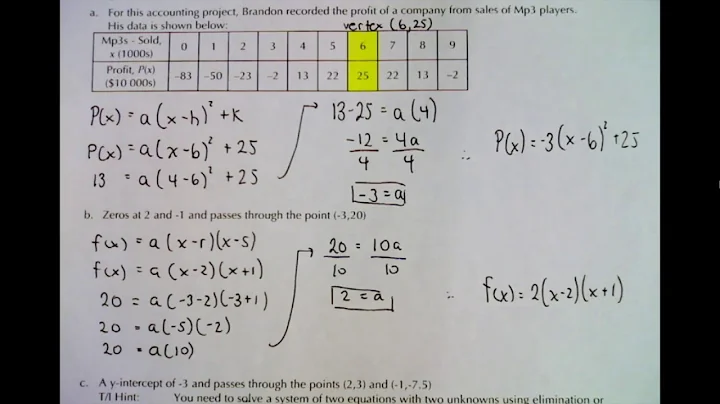 a. For this accounting project, Brandon recorded the profit of a company from sales of Mp3 players.
His data is shown below:
vertex (6,25)
Mp3s - Sold, x (1000s) 0 1 2 3 4 5 6 7 8 9
Profit, P(x) ($10 000s) -83 -50 -23 -2 13 22 25 22 13 -2
P(x) = a(x-h)² + k
P(x) = a(x-6)² + 25
13 = a(4-6)² + 25
13-25 = a(4)
-12 = 4a
4 4
-3 = a
∴ P(x) = -3(x-6)² + 25
b. Zeros at 2 and -1 and passes through the point (-3,20)
f(x) = a(x-r)(x-s)
f(x) = a(x-2)(x+1)
20 = a(-3-2)(-3+1)
20 = a(-5)(-2)
20 = a(10)
20 = 10a
10 10
2 = a
∴ f(x) = 2(x-2)(x+1)
c. A y-intercept of -3 and passes through the points (2,3) and (-1,-7.5)
T/I Hint: You need to solve a system of two equations with two unknowns using elimination or